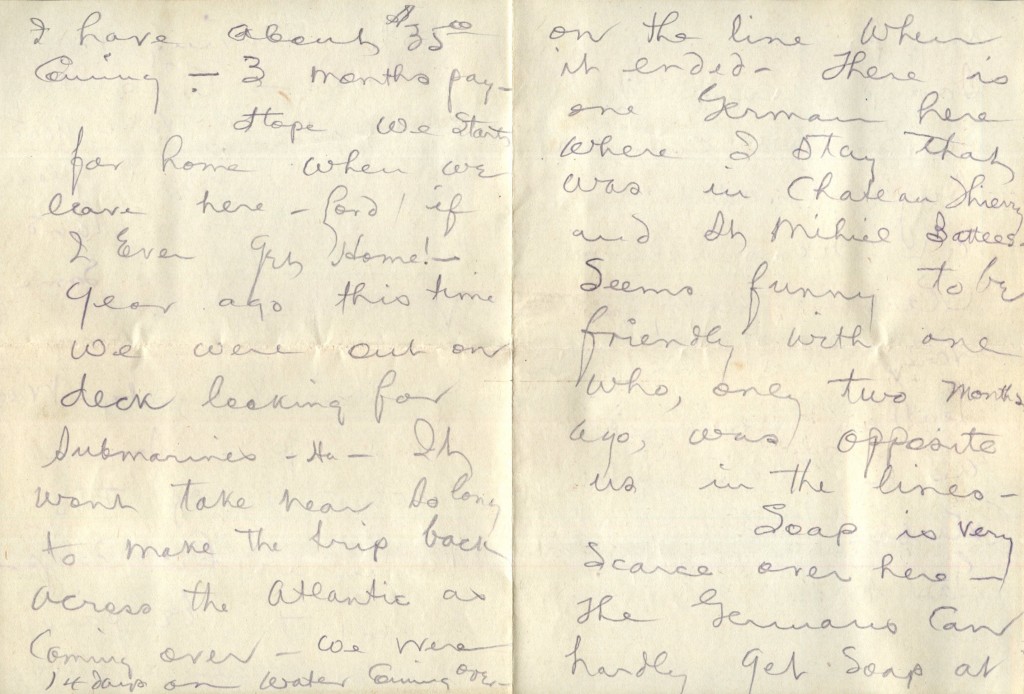 I have about $35.00
Coming - 3 months pay -
Hope we start
for home when we
leave here - Lord! if
I Ever Get Home! -
Year ago this time
we were out on
deck looking for
Submarines - Ha - It
wont take near so long
to make the trip back
across the Atlantic as
Coming over - we were
14 days on water Coming over -
on the line when
it ended - There is
one German here
where I stay that
was in Chateau Thierry
and St Mihiel Battles -
Seems funny to be
friendly with one
who, only two months
ago, was opposite
us in the lines -
Soap is very
Scarce over here -
The Germans Can
hardly get soap at